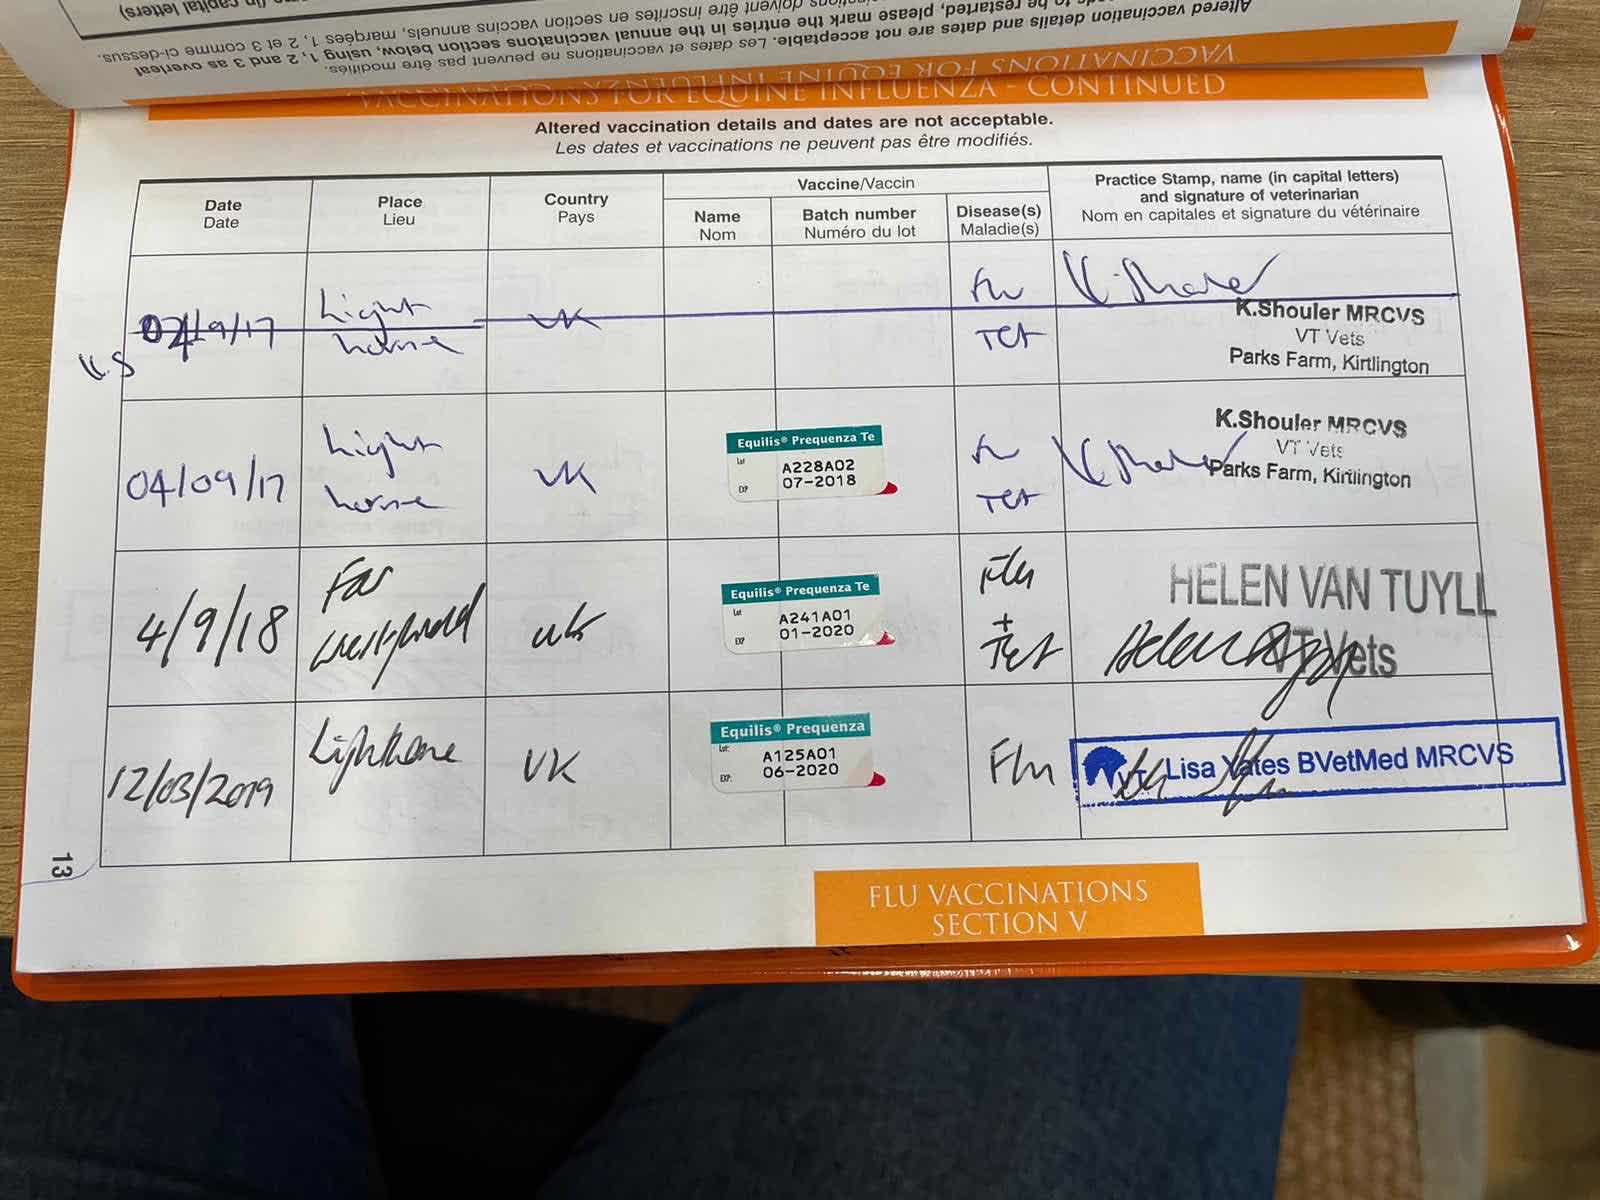 Altered vaccination details and dates are not acceptable. Les dates et vaccinations ne peuvent pas être modifiés.
to be restarted, please mark the entries in the annual vaccinations section below, using 1, 2 and 3 as overleaf
doivent être inscrites en section vaccins annuels, marquées 1, 2 et 3 comme ci-dessus.
(in capital letters)
VACCINATIONS FOR EQUINE INFLUENZA
VACCINATIONS FOR EQUINE INFLUENZA - CONTINUED
Altered vaccination details and dates are not acceptable.
Les dates et vaccinations ne peuvent pas être modifiés.
Date
Date
Place
Lieu
Country
Pays
Vaccine/Vaccin
Name
Nom
Batch number
Numéro du lot
Disease(s)
Maladie(s)
Practice Stamp, name (in capital letters)
and signature of veterinarian
Nom en capitales et signature du vétérinaire
K.S
/9/17
Light
horne
UK
Flu
TET
K. Shouler
K.Shouler MRCVS
VT Vets
Parks Farm, Kirtlington
04/09/17
Light
horne
UK
Equilis® Prequenza Te
Lot A228A02
EXP 07-2018
Flu
TET
K. Shouler
K.Shouler MRCVS
VT Vets
Parks Farm, Kirtlington
4/9/18
Far
UK
Equilis® Prequenza Te
Lot A241A01
EXP 01-2020
Flu
+
TET
HELEN VAN TUYLL
VT Vets
Helen
12/03/2019
Lighthorne
UK
Equilis® Prequenza
Lot: A125A01
EXP: 06-2020
Flu
VT Lisa Yates BVetMed MRCVS
13
FLU VACCINATIONS
SECTION V